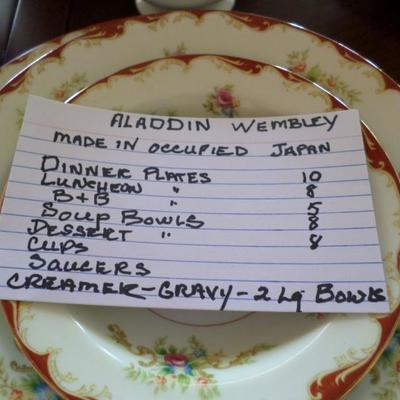 ALADDIN WEMBLEY
MADE IN OCCUPIED JAPAN
DINNER PLATES 10
LUNCHEON " 8
B+B " 5
SOUP BOWLS 8
DESSERT " 8
CUPS
SAUCERS
CREAMER-GRAVY-2 Lg BOWLS